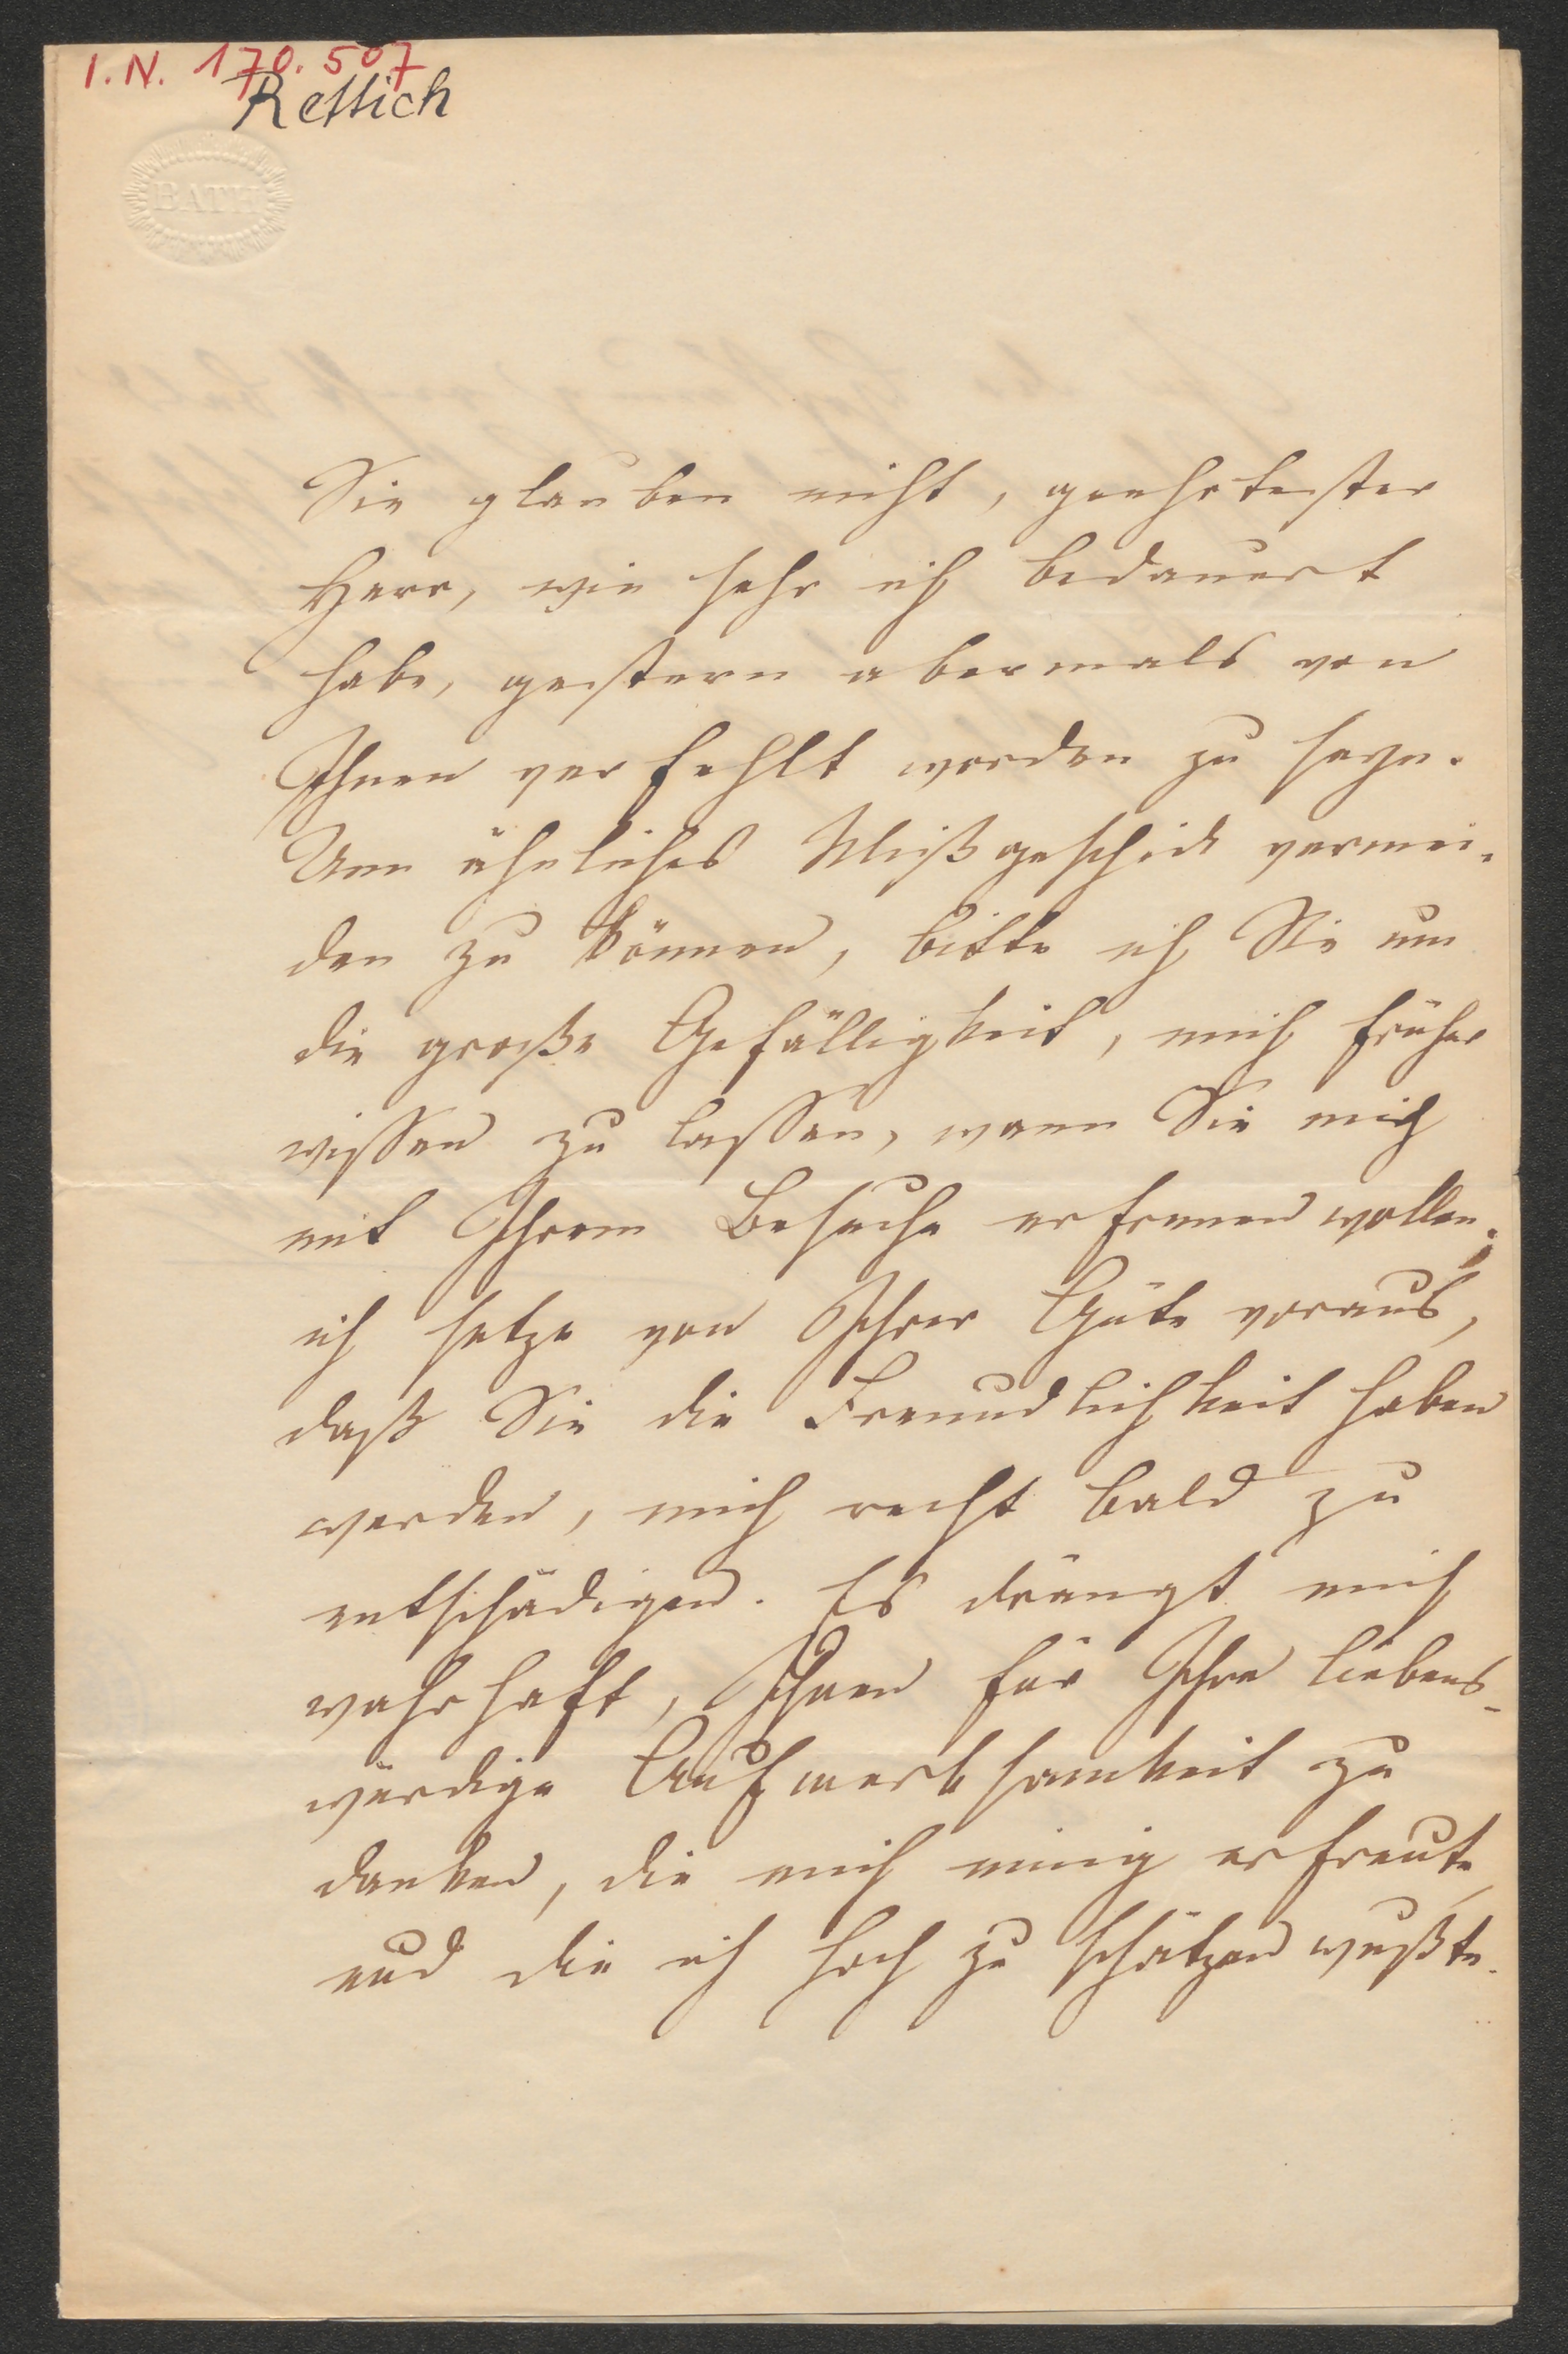 I. N. 170.507
Rettich
BATH
Sie glauben nicht, geehrtester
Herr, wie sehr ich bedauert
habe, gestern abermals von
Ihnen verfehlt worden zu seyn.
Um ähnliches Mißgeschick vermei-
den zu können, bitte ich Sie um
die große Gefälligkeit, mich früher
wissen zu lassen, wann Sie mich
mit Ihrem Besuche erfreuen wollen;
ich setze von Ihrer Güte voraus,
daß Sie die Freundlichkeit haben
werden, mich recht bald zu
entschädigen. Es drängt mich
wahrhaft, Ihnen für Ihre liebens-
würdige Aufmerksamkeit zu
danken, die mich innig erfreute,
und die ich hoch zu schätzen wußte.